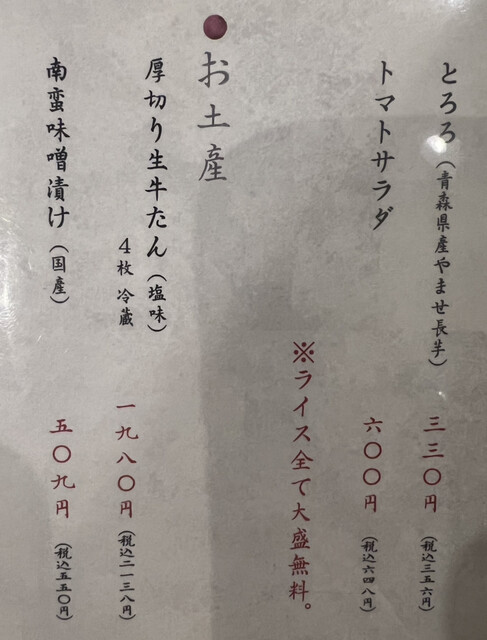 とろろ（青森県産やませ長芋）三三〇円（税込三五六円）
トマトサラダ 六〇〇円（税込六四八円）
※ライス全て大盛無料。
お土産
厚切り生牛たん（塩味）一九八〇円（税込二一三八円）
4枚 冷蔵
南蛮味噌漬け（国産）五〇九円（税込五五〇円）